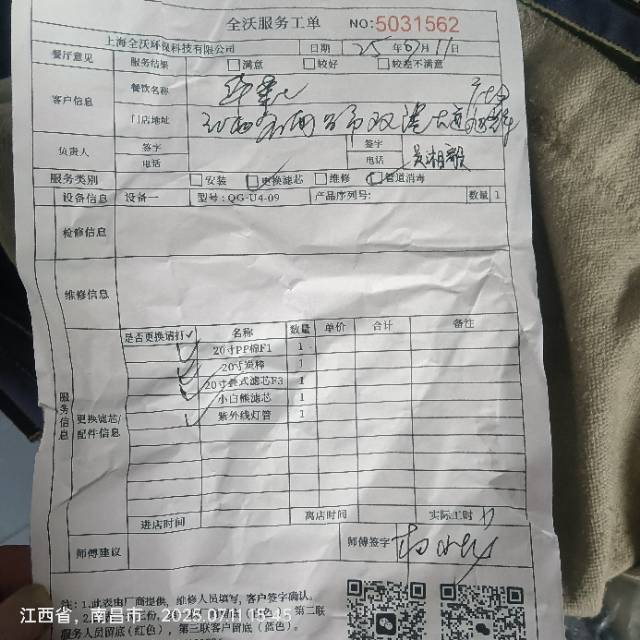 全沃服务工单 NO:5031562
上海全沃环保科技有限公司 日期 25年 月11日
餐厅意见 服务结果 满意 较好 较差不满意
客户信息 餐饮名称
门店地址 江西省南昌市双港大道
负责人 签字 签字
电话 电话
服务类别 安装 更换滤芯 维修 管道消毒
设备信息 设备一 型号:QG-U4-09 产品序列号: 数量 1
检修信息
维修信息
是否更换请打✓ 名称 数量 单价 合计 备注
✓ 20寸PP棉F1 1
✓ 20寸炭棒 1
✓ 20寸套式滤芯F3 1
小白熊滤芯 1
✓ 紫外线灯管 1
服务信息
更换滤芯/
配件信息
进店时间 离店时间 实际工时
师傅建议 师傅签字
注:1.此表由厂商提供,维修人员填写,客户签字确认。
第二联
服务人员留底(红色),第三联客户留底(蓝色)。
江西省,南昌市 2025/07/11 15:15